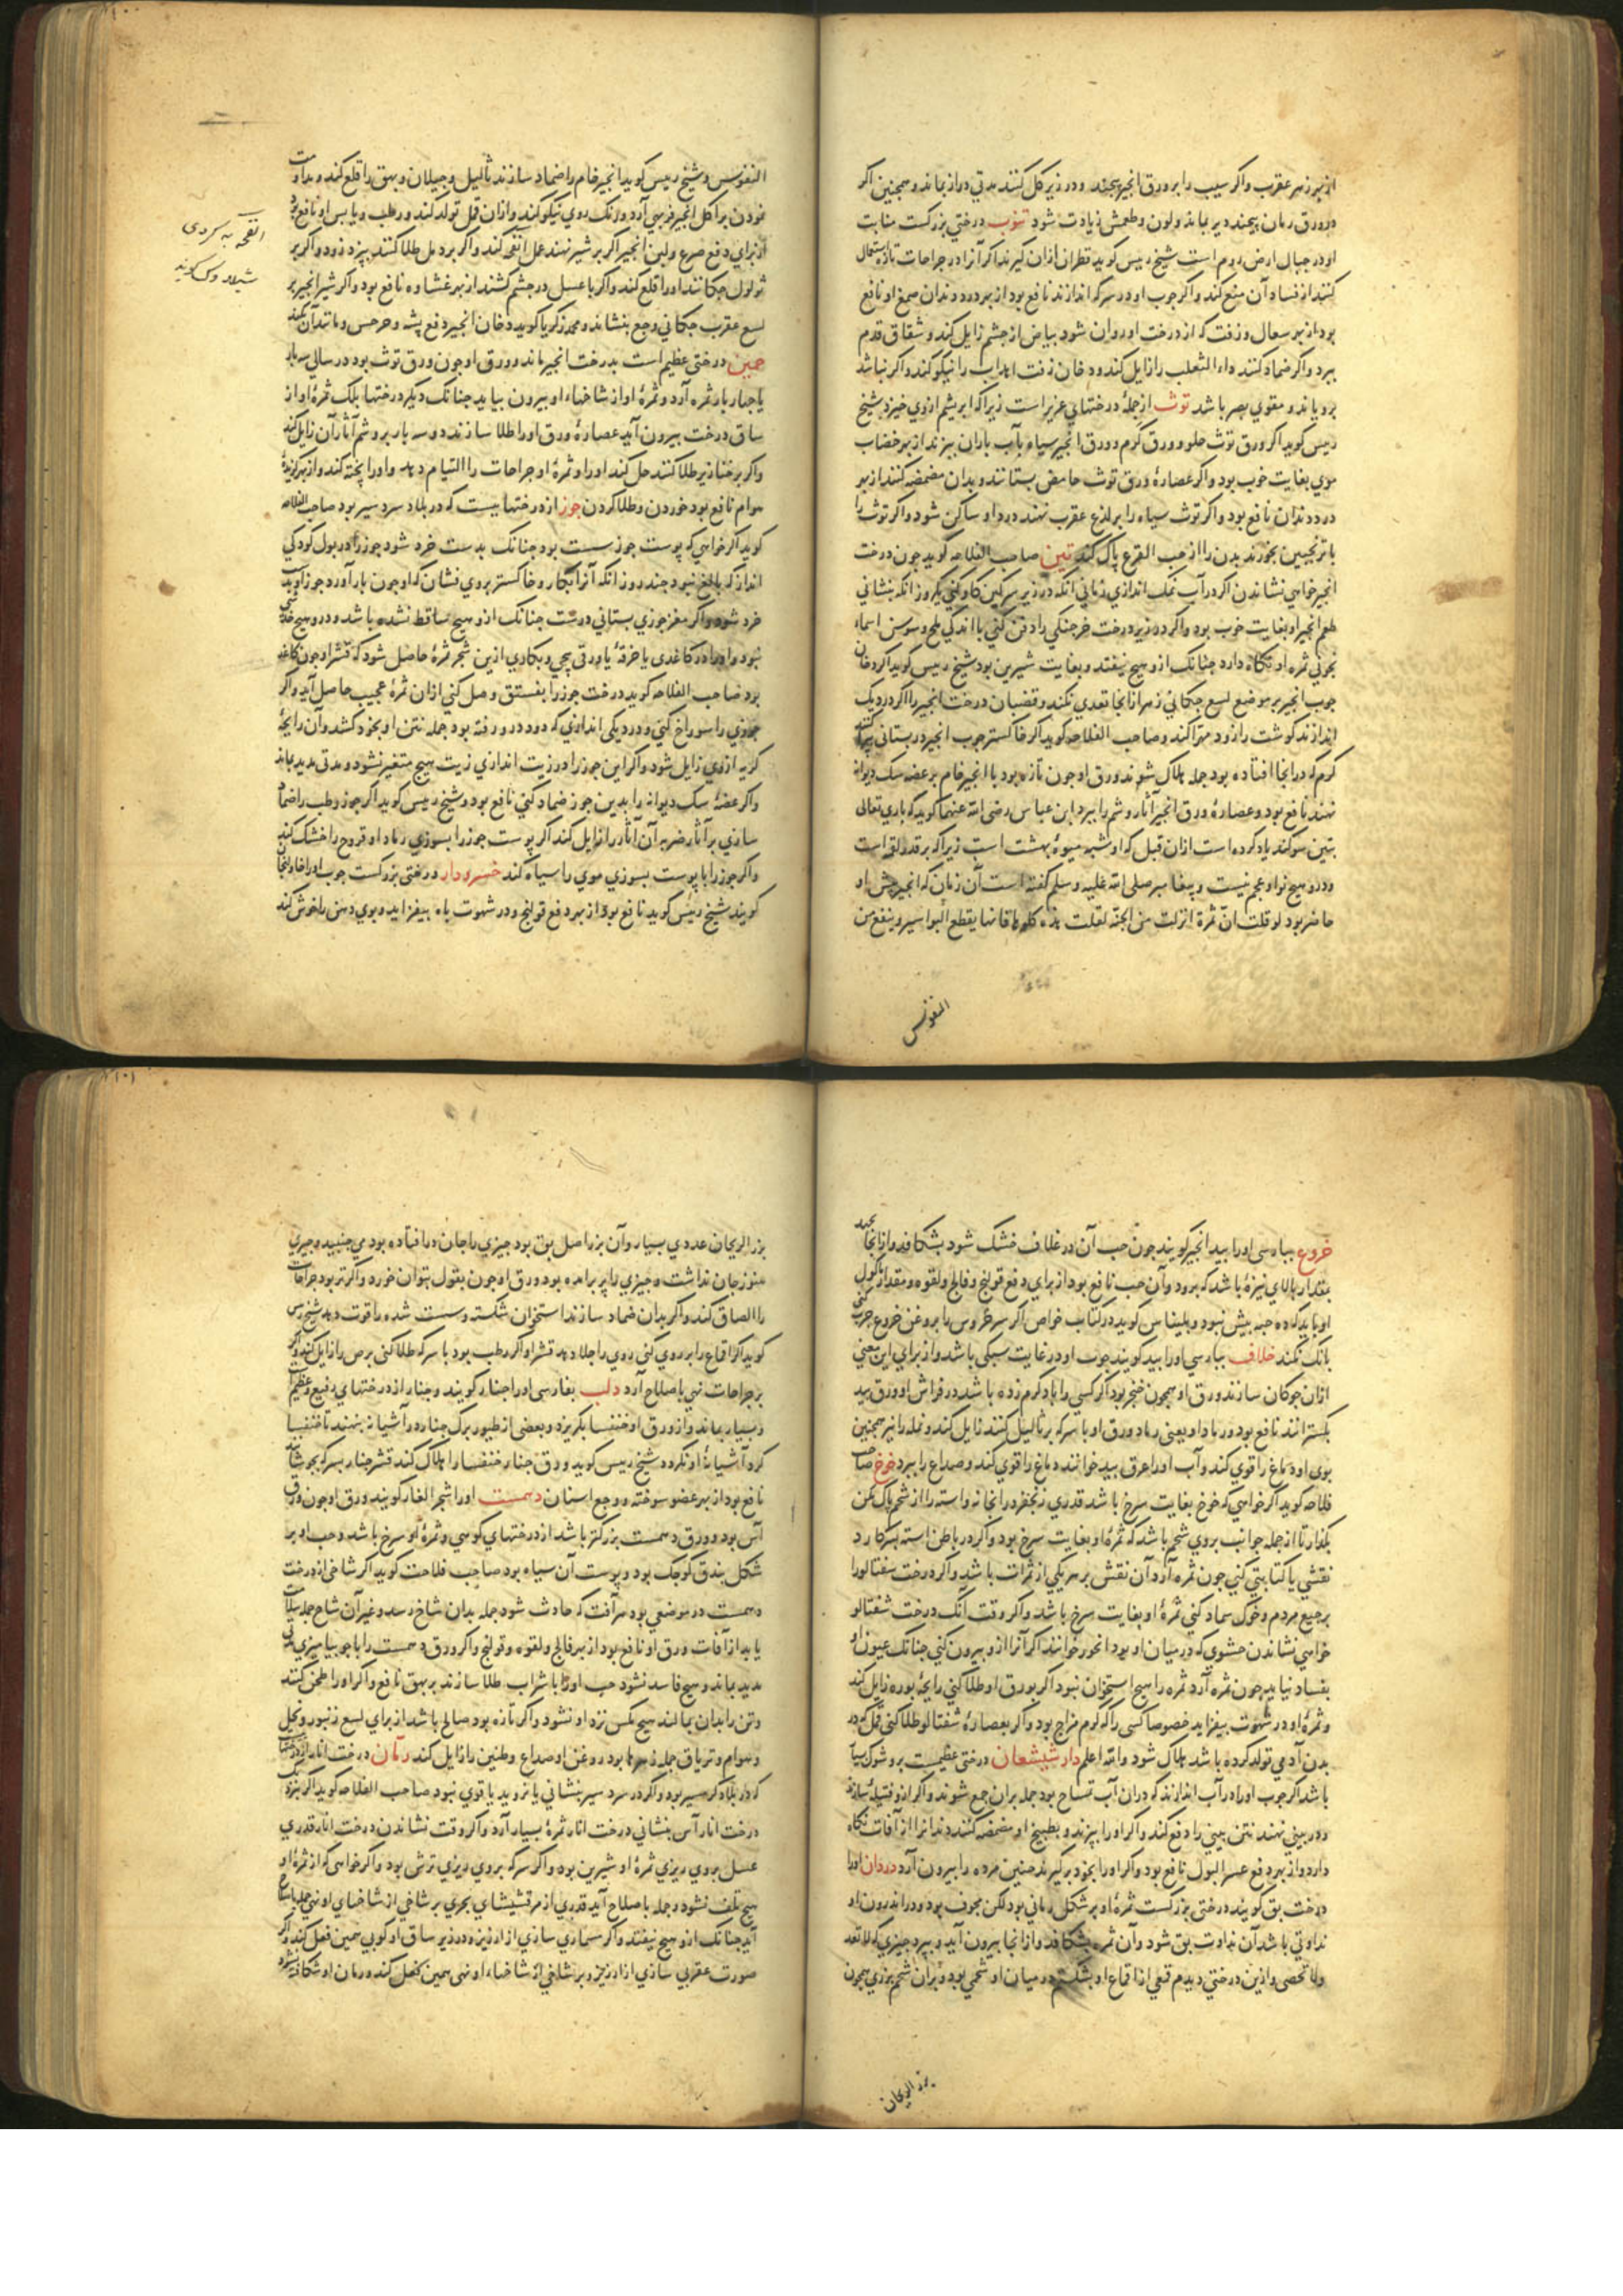 از بهر زهر عقرب واکر سیب را بر ورق انجیر پیچند و در زیر کل کنند مدتی دراز بماند و همچنین اکر
در ورق رمان پیچند دیر بماند و لون و طعمش زیادت شود تنوب درختی بزرکست منابت
او در جبال ارض روم است شیخ رییس کوید قطران ازان کیرند اکر آنرا در جراحات تازه استعمال
کنند از فساد آن منع کند واکر چوب او در سرکه اندازند نافع بود از بهر درد دندان صمغ او نافع
بود از بهر سعال و زفت که از درخت او روان شود بیاض از چشم زایل کند و شقاق قدم
ببرد واکر ضماد کنند داء الثعلب را زایل کند و دخان زفت اهداب را نیکو کند واکر نباشد
برویاند و مقوی بصر باشد توث از جملهٔ درختهای عزیز است زیرا که ابریشم ازوی خیزد شیخ
رییس کوید اکر ورق توث حلو و ورق کرم و ورق انجیر سیاه بآب باران بپزند از بهر خضاب
موی بغایت خوب بود واکر عصارهٔ ورق توث حامض بستانند و بدان مضمضه کنند از بهر
درد دندان نافع بود واکر توث سیاه را بر لدغ عقرب نهند درد او ساکن شود واکر توث را
با ترنجبین بخورند بدن را از حب القرع پاک کند تین صاحب الفلاحه کوید چون درخت
انجیر خواهی نشاندن اکر در آب نمک اندازی زمانی آنکه در زیر سرکین کاو کنی یکروز آنکه بنشانی
طعم انجیر او بغایت خوب بود واکر در زیر درخت خرچنکی را دفن کنی با اندکی ملح و سوسن اسمانـ
نجونی ثمره او نکاه دارد چنانک ازو هیچ نیفتد و بغایت شیرین بود شیخ رییس کوید اکر دخان
چوب انجیر بر موضع لسع چکانی زهر از انجا تعدی نکند و قضبان درخت انجیر را اکر در دیک
اندازند کوشت را زود مهرا کند و صاحب الفلاحه کوید اکر خاکستر چوب انجیر در بستانی پراکنند
کرم که در انجا افتاده بود جمله هلاک شوند ورق او چون تازه بود با انجیر خام بر عضه سک دیوانه
نهند نافع بود و عصارهٔ ورق انجیر آثار وشم را ببرد ابن عباس رضی الله عنهما کوید که باری تعالی
بتین سوکند یاد کرده است ازان قبل که او شبه میوهٔ بهشت است زیرا که بر قدر لقمه است
و درو هیچ نوا و عجم نیست و پیغامبر صلی الله علیه وسلم کفته است آن زمان که انجیر پیش او
حاضر بود لو قلت انّ ثمرة انزلت من الجنه لقلت هذه کلوها فانها یقطع البواسیر و ینفع من
النقرس
النقرس و شیخ رییس کوید انجیر خام را ضماد سازند ثآلیل و خیلان و بهق را قلع کند و مداومت
نمودن بر اکل انجیر فربهی آرد و رنک روی نیکو کند و ازان قمل تولد کند و رطب و یابس او نافع بود
از برای دفع صرع و لبن انجیر اکر بر شیر نهند عمل انفحه کند واکر بر دمل طلا کنند بپزد زود واکر بر
ثولول چکانند اورا قلع کند واکر با عسل در چشم کشند از بهر غشاوه نافع بود واکر شیر انجیر بر
لسع عقرب چکانی وجع بنشاند و محمد زکریا کوید دخان انجیر دفع پشه و جرجس و مانند آن کند
جمیز درختی عظیم است بدرخت انجیر ماند و ورق او چون ورق توث بود در سالی سه بار
یا چهار بار ثمره آرد و ثمرهٔ او از شاخهاء او بیرون نیاید چنانک دیکر درختها بلک ثمرهٔ او از
ساق درخت بیرون آید عصارهٔ ورق اورا طلا سازند دو سه بار بر وشم آثار آن زایل کند
واکر بر خنازیر طلا کنند حل کند اورا و ثمرهٔ او جراحات را التیام دهد و اورا پخته کند و از بهر کزیدهٔ
هوام نافع بود خوردن و طلا کردن جوز از درختهاییست که در بلاد سردسیر بود صاحب الفلاحه
کوید اکر خواهی که پوست جوز سست بود چنانک بدست خرد شود جوز را در بول کودکی
انداز که بالغ نبود چند روز آنکه آنرا بکار و خاکستر بروی نشان که او چون بار آورد جوز او بدست
خرد شود واکر مغز جوزی بستانی درست چنانک ازو هیچ ساقط نشده باشد و درو هیچ خللی
نبود و اورا در کاغدی یا خرقهٔ یا ورقی پیچی و بکاری ازین شجر ثمرهٔ حاصل شود که قشر او چون کاغد
بود صاحب الفلاحه کوید درخت جوز را بفستق وصل کنی ازان ثمرهٔ عجیب حاصل آید واکر
جوزی را سوراخ کنی و در دیکی اندازی که دود درو رفته بود جمله نتن او بخود کشد و آن رایحهٔ
کریه ازوی زایل شود واکر این جوز را در زیت اندازی زیت هیچ متغیر نشود و مدتی مدید بماند
واکر عضهٔ سک دیوانه را بدین جوز ضماد کنی نافع بود و شیخ رییس کوید اکر جوز رطب را ضماد
سازی بر آثار ضربه آن آثار را زایل کند اکر پوست جوز را بسوزی رماد او قروح را خشک کند
واکر جوز را با پوست بسوزی موی را سیاه کند خسرودار درختی بزرکست چوب اورا خاولنجان
کویند شیخ رییس کوید نافع بود از بهر دفع قولنج و در شهوت باه بیفزاید و بوی دهن را خوش کند
انفحه به کردی
شیلاو کویند
خروع بپارسی اورا بید انجیر کویند چون حب آن در غلاف خشک شود بشکافد و از انجا بجهد
بمقدار بالای نیزهٔ باشد که برود و آن حب نافع بود از برای دفع قولنج و فالج و لقوه و مقدار ماکول
او باید که ده حبه بیش نبود و بلیناس کوید در کتاب خواص اکر سر خروس را بروغن خروع چرب کنی
بانک نکند خلاف بپارسی اورا بید کویند چوب او در غایت سبکی باشد و از برای این معنی
ازان چوکان سازند ورق او همچون خنجر بود اکر کسی را باد کرم زده باشد در فراش او ورق بید
بکسترانند نافع بود و رماد او یعنی رماد ورق او با سرکه بر ثآلیل کنند زایل کند و نمله را نیز همچنین
بوی او دماغ را قوی کند و آب اورا عرق بید خوانند دماغ را قوی کند و صداع را ببرد خوخ صاحب
فلاحه کوید اکر خواهی که خوخ بغایت سرخ باشد قدری زنجفر در انجا نه و استه را از شحم پاک مکن
بکذار تا از جمله جوانب بروی شحم باشد که ثمرهٔ او بغایت سرخ بود واکر در باطن استه بسر کارد
نقشی یا کتابتی کنی چون ثمره آرد آن نقش بر هر یکی از ثمرات باشد واکر درخت شفتالو را
برجیع مردم و خوک سماد کنی ثمرهٔ او بغایت سرخ باشد واکر وقت آنک درخت شفتالو
خواهی نشاندن حشوی که در میان او بود انحور خوانند اکر آنرا ازو بیرون کنی چنانک عیون او
بفساد نیاید چون ثمره آرد ثمره را هیچ استخوان نبود اکر بورق او طلا کنی رایحهٔ بوره زایل کند
و ثمرهٔ او در شهوت بیفزاید خصوصا کسی را که کرم مزاج بود واکر بعصارهٔ شفتالو طلا کنی قمل که در
بدن آدمی تولد کرده باشد هلاک شود والله اعلم دارشیشعان درختی عظیمست برو شوک بسیار
باشد اکر چوب اورا در آب اندازند که دران آب تمساح بود جمله بران جمع شوند واکر ازو فتیله سازند
و در بینی نهند نتن بینی را دفع کند واکر اورا بپزند و بطبیخ او مضمضه کنند دندانرا از آفات نکاه
دارد و از بهر دفع عسر البول نافع بود واکر اورا بخود برکیرند جنین مرده را بیرون آرد دردان اورا
درخت بق کویند درختی بزرکست ثمرهٔ او بر شکل رمانی بود لکن مجوف بود و در اندرون او
نداوتی باشد آن نداوت بق شود و آن ثمره بشکافد و از انجا بیرون آید و بپرد چیزی که لا تعد
ولا تحصی و ازین درختی دیدم قمعی از اقماع او بشکستم در میان او شحمی بود و بران شحم بزری همچون
بزر الریحان
بزر الریحان عددی بسیار و آن بزر اصل بق بود چیزی را جان در افتاده بود می جنبید و چیزی
هنوز جان نداشت و چیزی را پر برامده بود ورق او چون بقول بتوان خورد واکر تر بود جراحات
را الصاق کند واکر بدان ضماد سازند استخوان شکسته و سست شده را قوت دهد شیخ رییس
کوید اکر اقماع را بر روی کنی روی را جلا دهد قشر او اکر رطب بود با سرکه طلا کنی برص را زایل کند واکر
بر جراحات نهی باصلاح آرد دلب بفارسی اورا چنار کویند و چنار از درختهای رفیع و عظیم است
و بسیار بماند و از ورق او خنفسا بکریزد و بعضی از طیور برک چنار در آشیانه بنهند تا خنفسا
کرد آشیانهٔ او نکردد شیخ رییس کوید ورق چنار خنفسا را هلاک کند قشر چنار بسرکه بجوشانند
نافع بود از بهر عضو سوخته و وجع اسنان دهمست اورا شجر الغار کویند ورق او چون ورق
آس بود و ورق دهمست بزرکتر باشد از درختهای کوهی و ثمرهٔ او سرخ باشد و حب او بر
شکل بندق کوچک بود و پوست آن سیاه بود صاحب فلاحت کوید اکر شاخی از درخت
دهمست در موضعی بود هر آفت که حادث شود جمله بدان شاخ رسد و غیر آن شاخ جمله سلامت
یابد از آفات ورق او نافع بود از بهر فالج و لقوه و قولنج واکر ورق دهمست را با جو بیامیزی مدتی
مدید بماند و هیچ فاسد نشود حب اورا با شراب طلا سازند بر بهق نافع واکر اورا طحن کنند
و تن را بدان بمالند هیچ مکس نزد او نشود واکر تازه بود صالح باشد از برای لسع زنبور و نحل
و هوام و تریاق جمله زهرها بود روغن او صداع و طنین را زایل کند رمان درخت انار از درختهاست
که در بلاد کرمسیر بود واکر در سردسیر بنشانی یا نروید یا قوی نبود صاحب الفلاحه کوید اکر بنزد
درخت انار آس بنشانی درخت انار ثمرهٔ بسیار آرد واکر وقت نشاندن درخت انار قدری
عسل بروی ریزی ثمرهٔ او شیرین بود واکر سرکه بروی ریزی ترش بود واکر خواهی که از ثمرهٔ او
هیچ تلف نشود و جمله باصلاح آید قدری از مرقشیشای بحری بر شاخی از شاخهای او نهی جمله باصلاح
آید چنانک ازو هیچ نیفتد واکر سماری سازی از ارزیز و در زیر ساق او کوبی همین فعل کند واکر
صورت عقربی سازی از ارزیز و بر شاخی از شاخهاء او نهی همین فعل کند و رمان او شکافته نشود